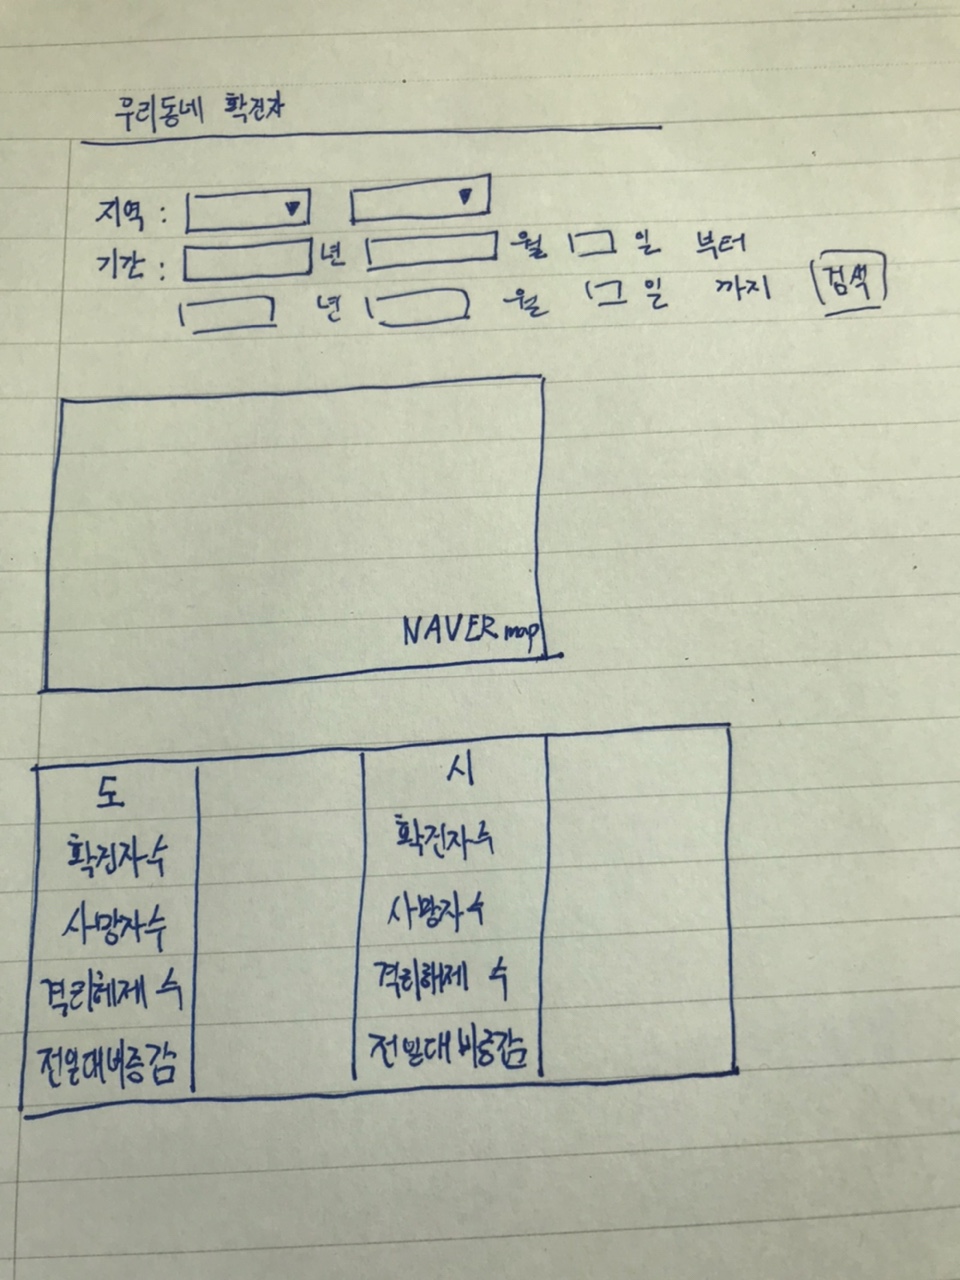 우리동네 확진자
지역 :
기간 : 년 월 일 부터
년 월 일 까지 검색
NAVER map
도 시
확진자수 확진자수
사망자수 사망자수
격리해제 수 격리해제 수
전일대비증감 전일대비증감